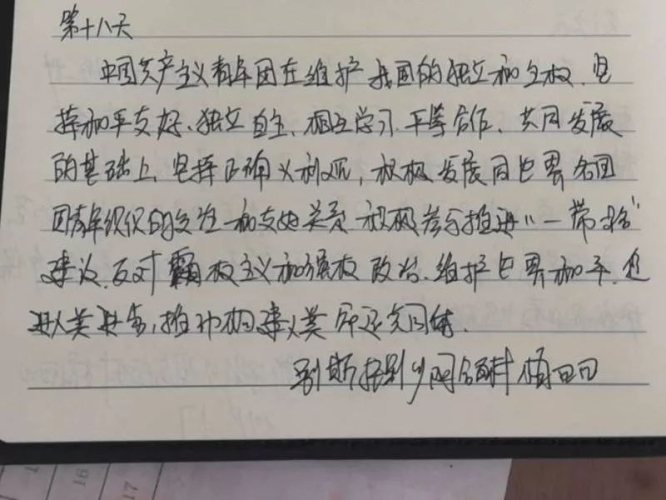 第十八天
中国共产主义青年团在维护我国的独立和主权、坚
持和平友好、独立自主、相互学习、平等合作、共同发展
的基础上，坚持正确义利观，积极发展同世界各国
国青年组织的交往和友好关系，积极参与推进“一带一路”
建设，反对霸权主义和强权政治，维护世界和平，促
进人类进步，推动构建人类命运共同体。